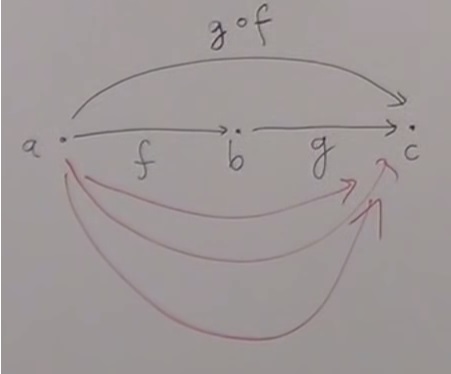 g∘f
a f b g c